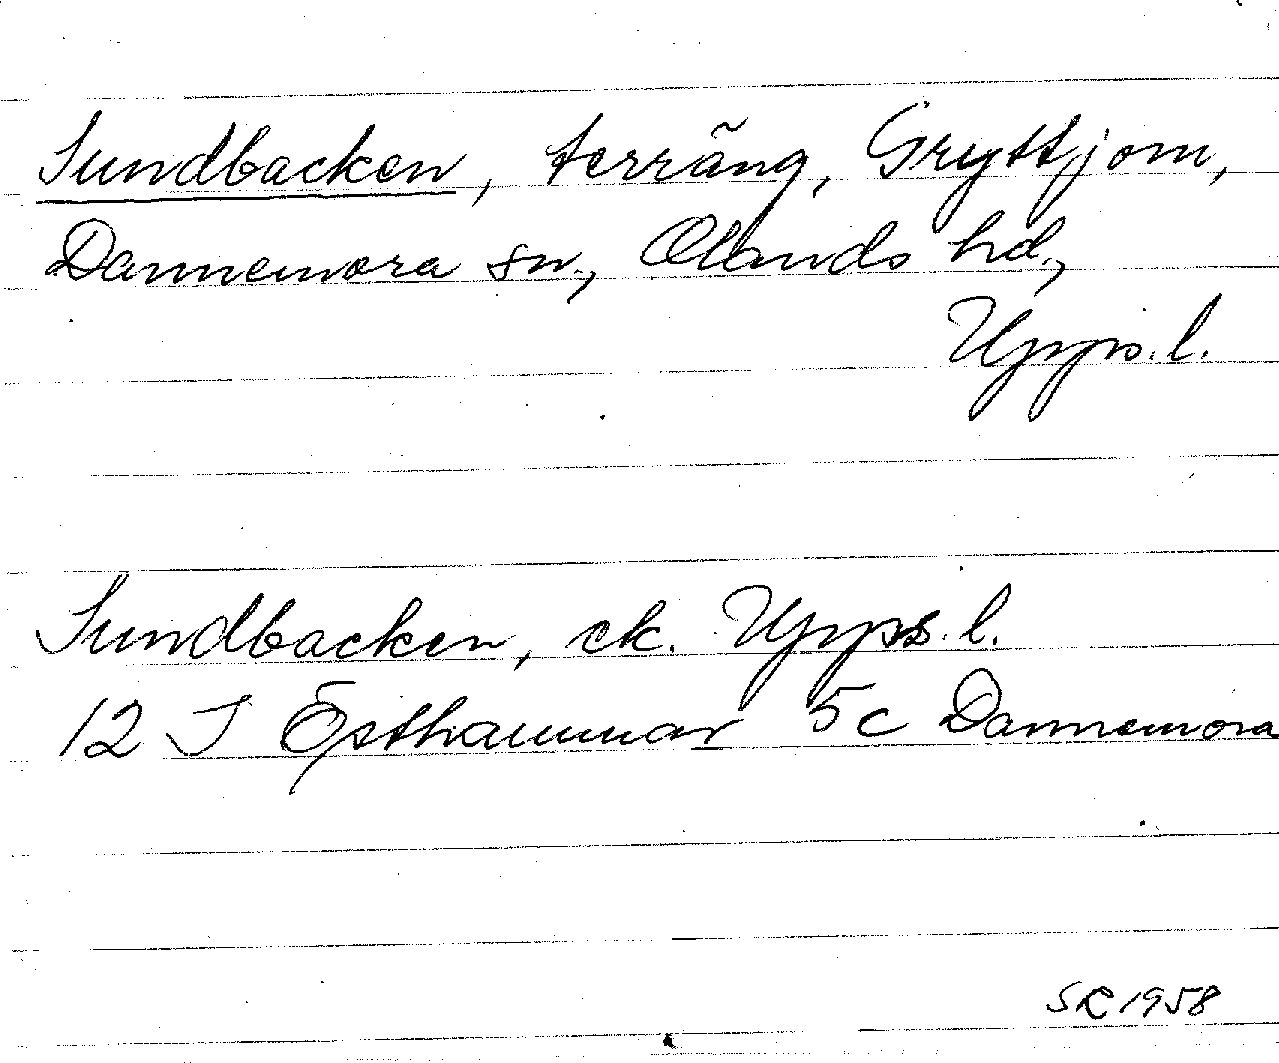 Sundbacken, terräng, Gryttjom,
Dannemora sn., Olands hd.,
Upps. l.
Sundbacken, ek. Upps. l.
12 I Östhammar 5c Dannemora
SR 1958